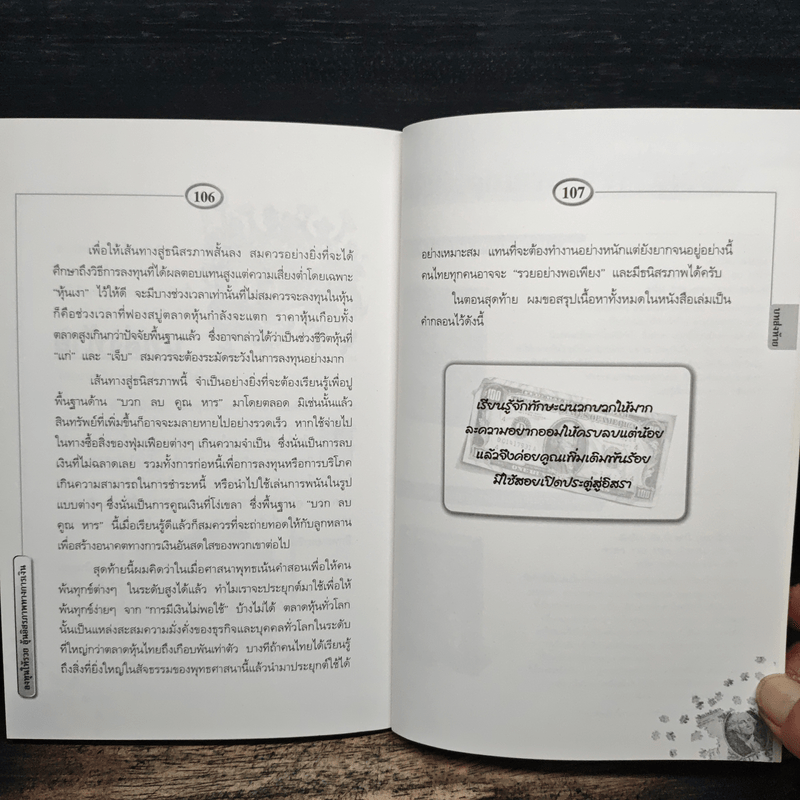 106
เพื่อให้เส้นทางสู่ธนิสรภาพสั้นลง สมควรอย่างยิ่งที่จะได้
ศึกษาถึงวิธีการลงทุนที่ได้ผลตอบแทนสูงแต่ความเสี่ยงต่ำโดยเฉพาะ
"หุ้นเงา" ไว้ให้ดี จะมีบางช่วงเวลาเท่านั้นที่ไม่สมควรจะลงทุนในหุ้น
ก็คือช่วงเวลาที่ฟองสบู่ตลาดหุ้นกำลังจะแตก ราคาหุ้นเกือบทั้ง
ตลาดสูงเกินกว่าปัจจัยพื้นฐานแล้ว ซึ่งอาจกล่าวได้ว่าเป็นช่วงชีวิตหุ้นที่
"แก่" และ "เจ็บ" สมควรจะต้องระมัดระวังในการลงทุนอย่างมาก
เส้นทางสู่ธนิสรภาพนี้ จำเป็นอย่างยิ่งที่จะต้องเรียนรู้เพื่อปู
พื้นฐานด้าน "บวก ลบ คูณ หาร" มาโดยตลอด มิเช่นนั้นแล้ว
สินทรัพย์ที่เพิ่มขึ้นก็อาจจะมลายหายไปอย่างรวดเร็ว หากใช้จ่ายไป
ในทางซื้อสิ่งของฟุ่มเฟือยต่างๆ เกินความจำเป็น ซึ่งนั่นเป็นการลบ
เงินที่ไม่ฉลาดเลย รวมทั้งการก่อหนี้เพื่อการลงทุนหรือการบริโภค
เกินความสามารถในการชำระหนี้ หรือนำไปใช้เล่นการพนันในรูป
แบบต่างๆ ซึ่งนั่นเป็นการคูณเงินที่โง่เขลา ซึ่งพื้นฐาน "บวก ลบ
คูณ หาร" นี้เมื่อเรียนรู้ดีแล้วก็สมควรที่จะถ่ายทอดให้กับลูกหลาน
เพื่อสร้างอนาคตทางการเงินอันสดใสของพวกเขาต่อไป
สุดท้ายนี้ผมคิดว่าในเมื่อศาสนาพุทธเน้นคำสอนเพื่อให้คน
พ้นทุกข์ต่างๆ ในระดับสูงได้แล้ว ทำไมเราจะประยุกต์มาใช้เพื่อให้
พ้นทุกข์ง่ายๆ จาก "การมีเงินไม่พอใช้" บ้างไม่ได้ ตลาดหุ้นทั่วโลก
นั้นเป็นแหล่งสะสมความมั่งคั่งของธุรกิจและบุคคลทั่วโลกในระดับ
ที่ใหญ่กว่าตลาดหุ้นไทยถึงเกือบพันเท่าตัว บางทีถ้าคนไทยได้เรียนรู้
ถึงสิ่งที่ยิ่งใหญ่ในสัจธรรมของพุทธศาสนานี้แล้วนำมาประยุกต์ใช้ได้
ลงทุนให้รวย สู่นิสรภาพทางการเงิน
107
อย่างเหมาะสม แทนที่จะต้องทำงานอย่างหนักแต่ยังยากจนอยู่อย่างนี้
คนไทยทุกคนอาจจะ "รวยอย่างพอเพียง" และมีธนิสรภาพได้ครับ
ในตอนสุดท้าย ผมขอสรุปเนื้อหาทั้งหมดในหนังสือเล่มเป็น
คำกลอนไว้ดังนี้
เรียนรู้จักทักษะผนวกบวกให้มาก
ละความอยากออมให้ครบลบแต่น้อย
แล้วจึงค่อยคูณเพิ่มเติมพันร้อย
มีใช้สอยเปิดประตูสู่อิสรา
บทส่งท้าย